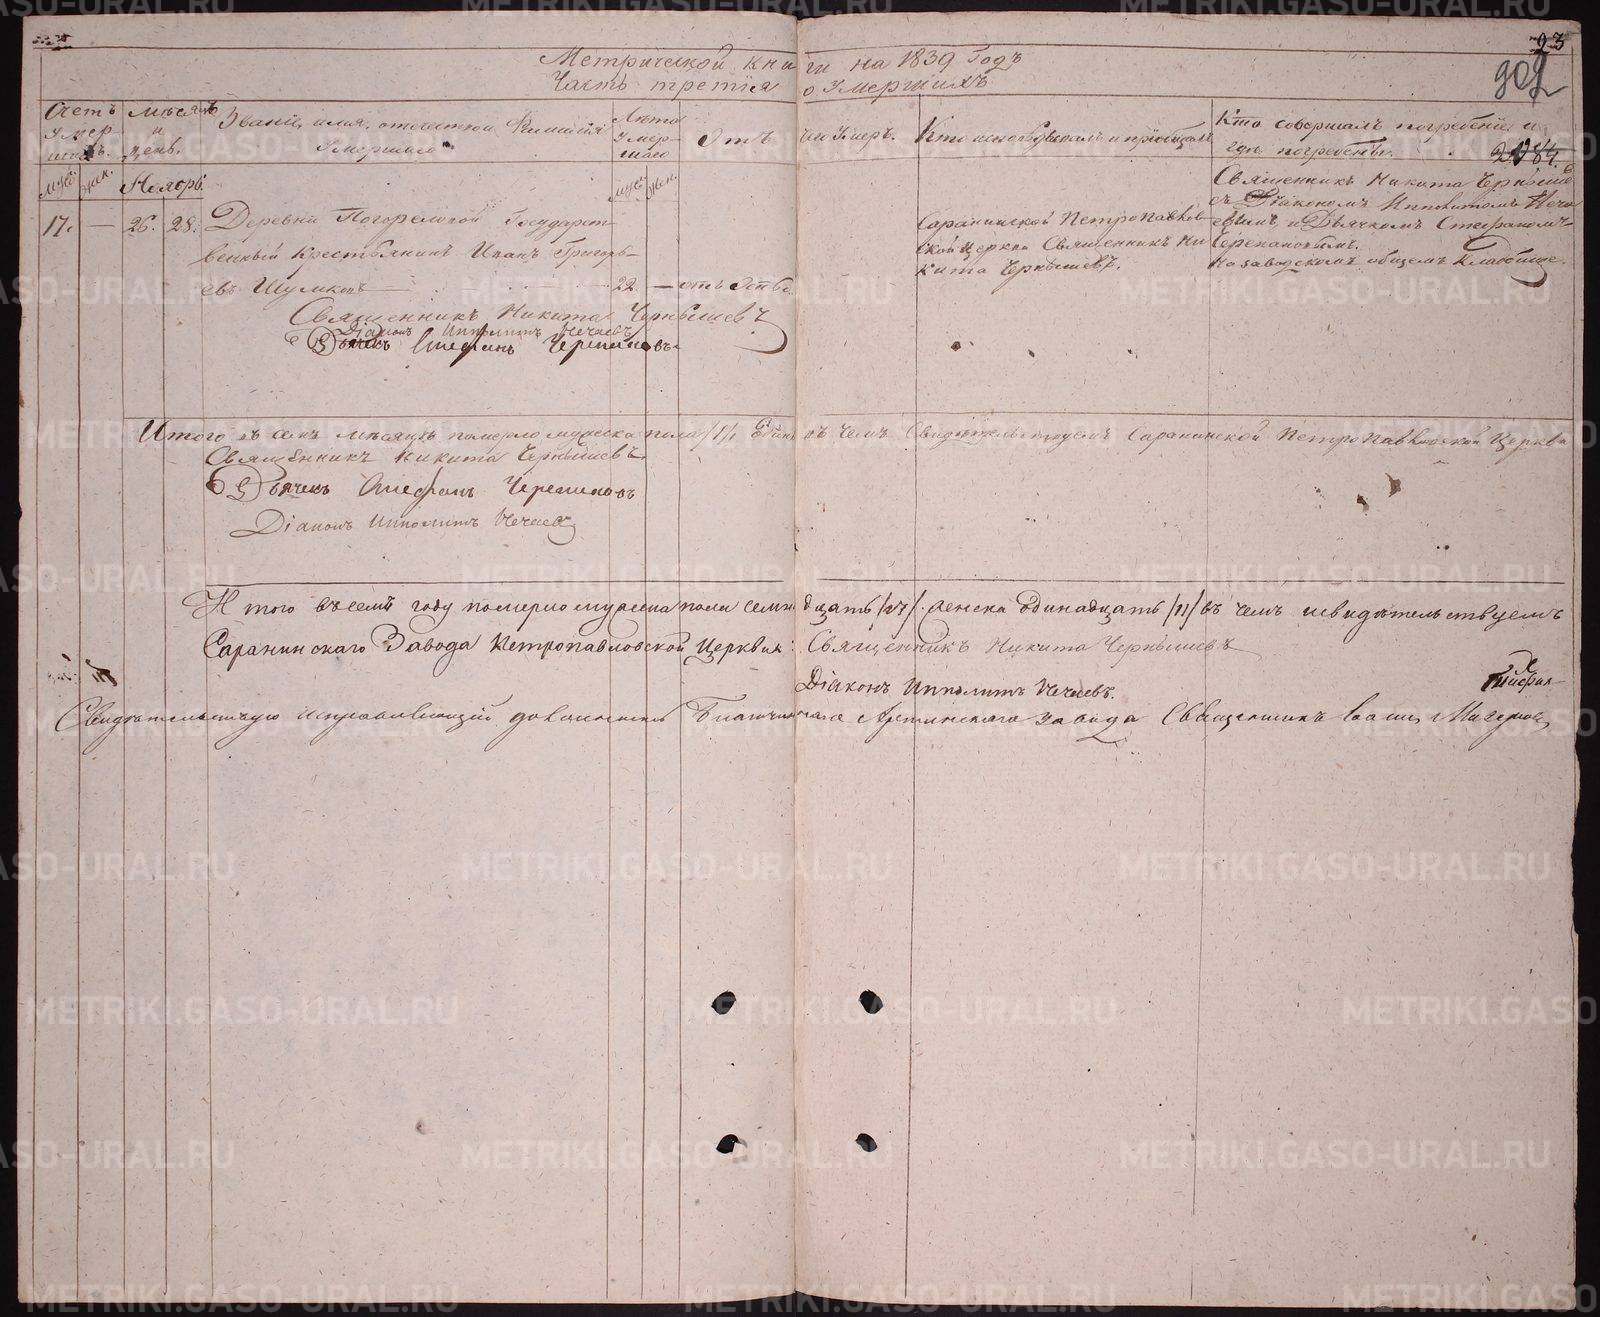 93
902
Метрической книги на 1839 Годъ
Часть третiя о Умершихъ
Счетъ Умершихъ.
Мѣсяцъ и день.
Званiе, имя, отечество и Фамилiя Умершаго
Лѣта Умершаго
Отъ чего Умеръ.
Кто исповѣдывалъ и прiобщалъ
Кто совершалъ погребенiе и
гдѣ погребенъ.
муж. жен.
Ноября.
муж. жен.
17. — 26. 28. Деревни Погорѣловой Государст-
венный Крестьянинъ Иванъ Григорь-
евъ Шумковъ — 22. —
Саранинской Петропавлов-
ской церкви Священникъ Ни-
кита Чернышевъ.
Священникъ Никита Чернышев
съ Дiакономъ Ипполитомъ Нечае
вымъ, и Дьячкомъ Стефаномъ
Черепановымъ.
На заводскомъ общемъ Кладбище.
Священникъ Никита Чернышевъ
Дiаконъ Ипполитъ Нечаевъ
Дьячекъ Стефанъ Черепановъ.
Итого въ семъ мѣсяцѣ померло мужеска пола /1/ Одинъ въ чемъ Свидѣтельствуемъ Саранинской Петропавловской Церкви
Священникъ Никита Чернышевъ
Дьячекъ Стефанъ Черепановъ
Дiаконъ Ипполитъ Нечаевъ
Итого въ семъ году померло мужеска пола семнадцать /17/. женска Одинадцать /11/ въ чемъ и свидѣтельствуемъ
Саранинскаго Завода Петропавловской Церкви: Священникъ Никита Чернышевъ
Дiаконъ Ипполитъ Нечаевъ.
Свидѣтельствую исправляющiй должность Благочиннаго Артинскаго завода Священникъ
METRIKI.GASO-URAL.RU